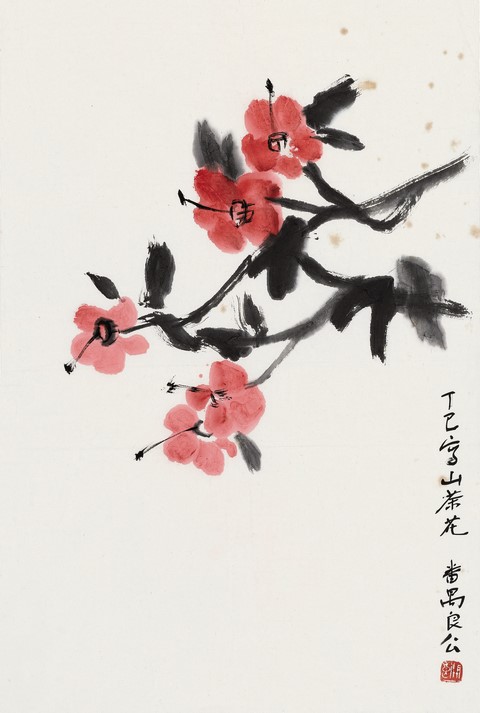 丁巳写山茶花 番禺良公